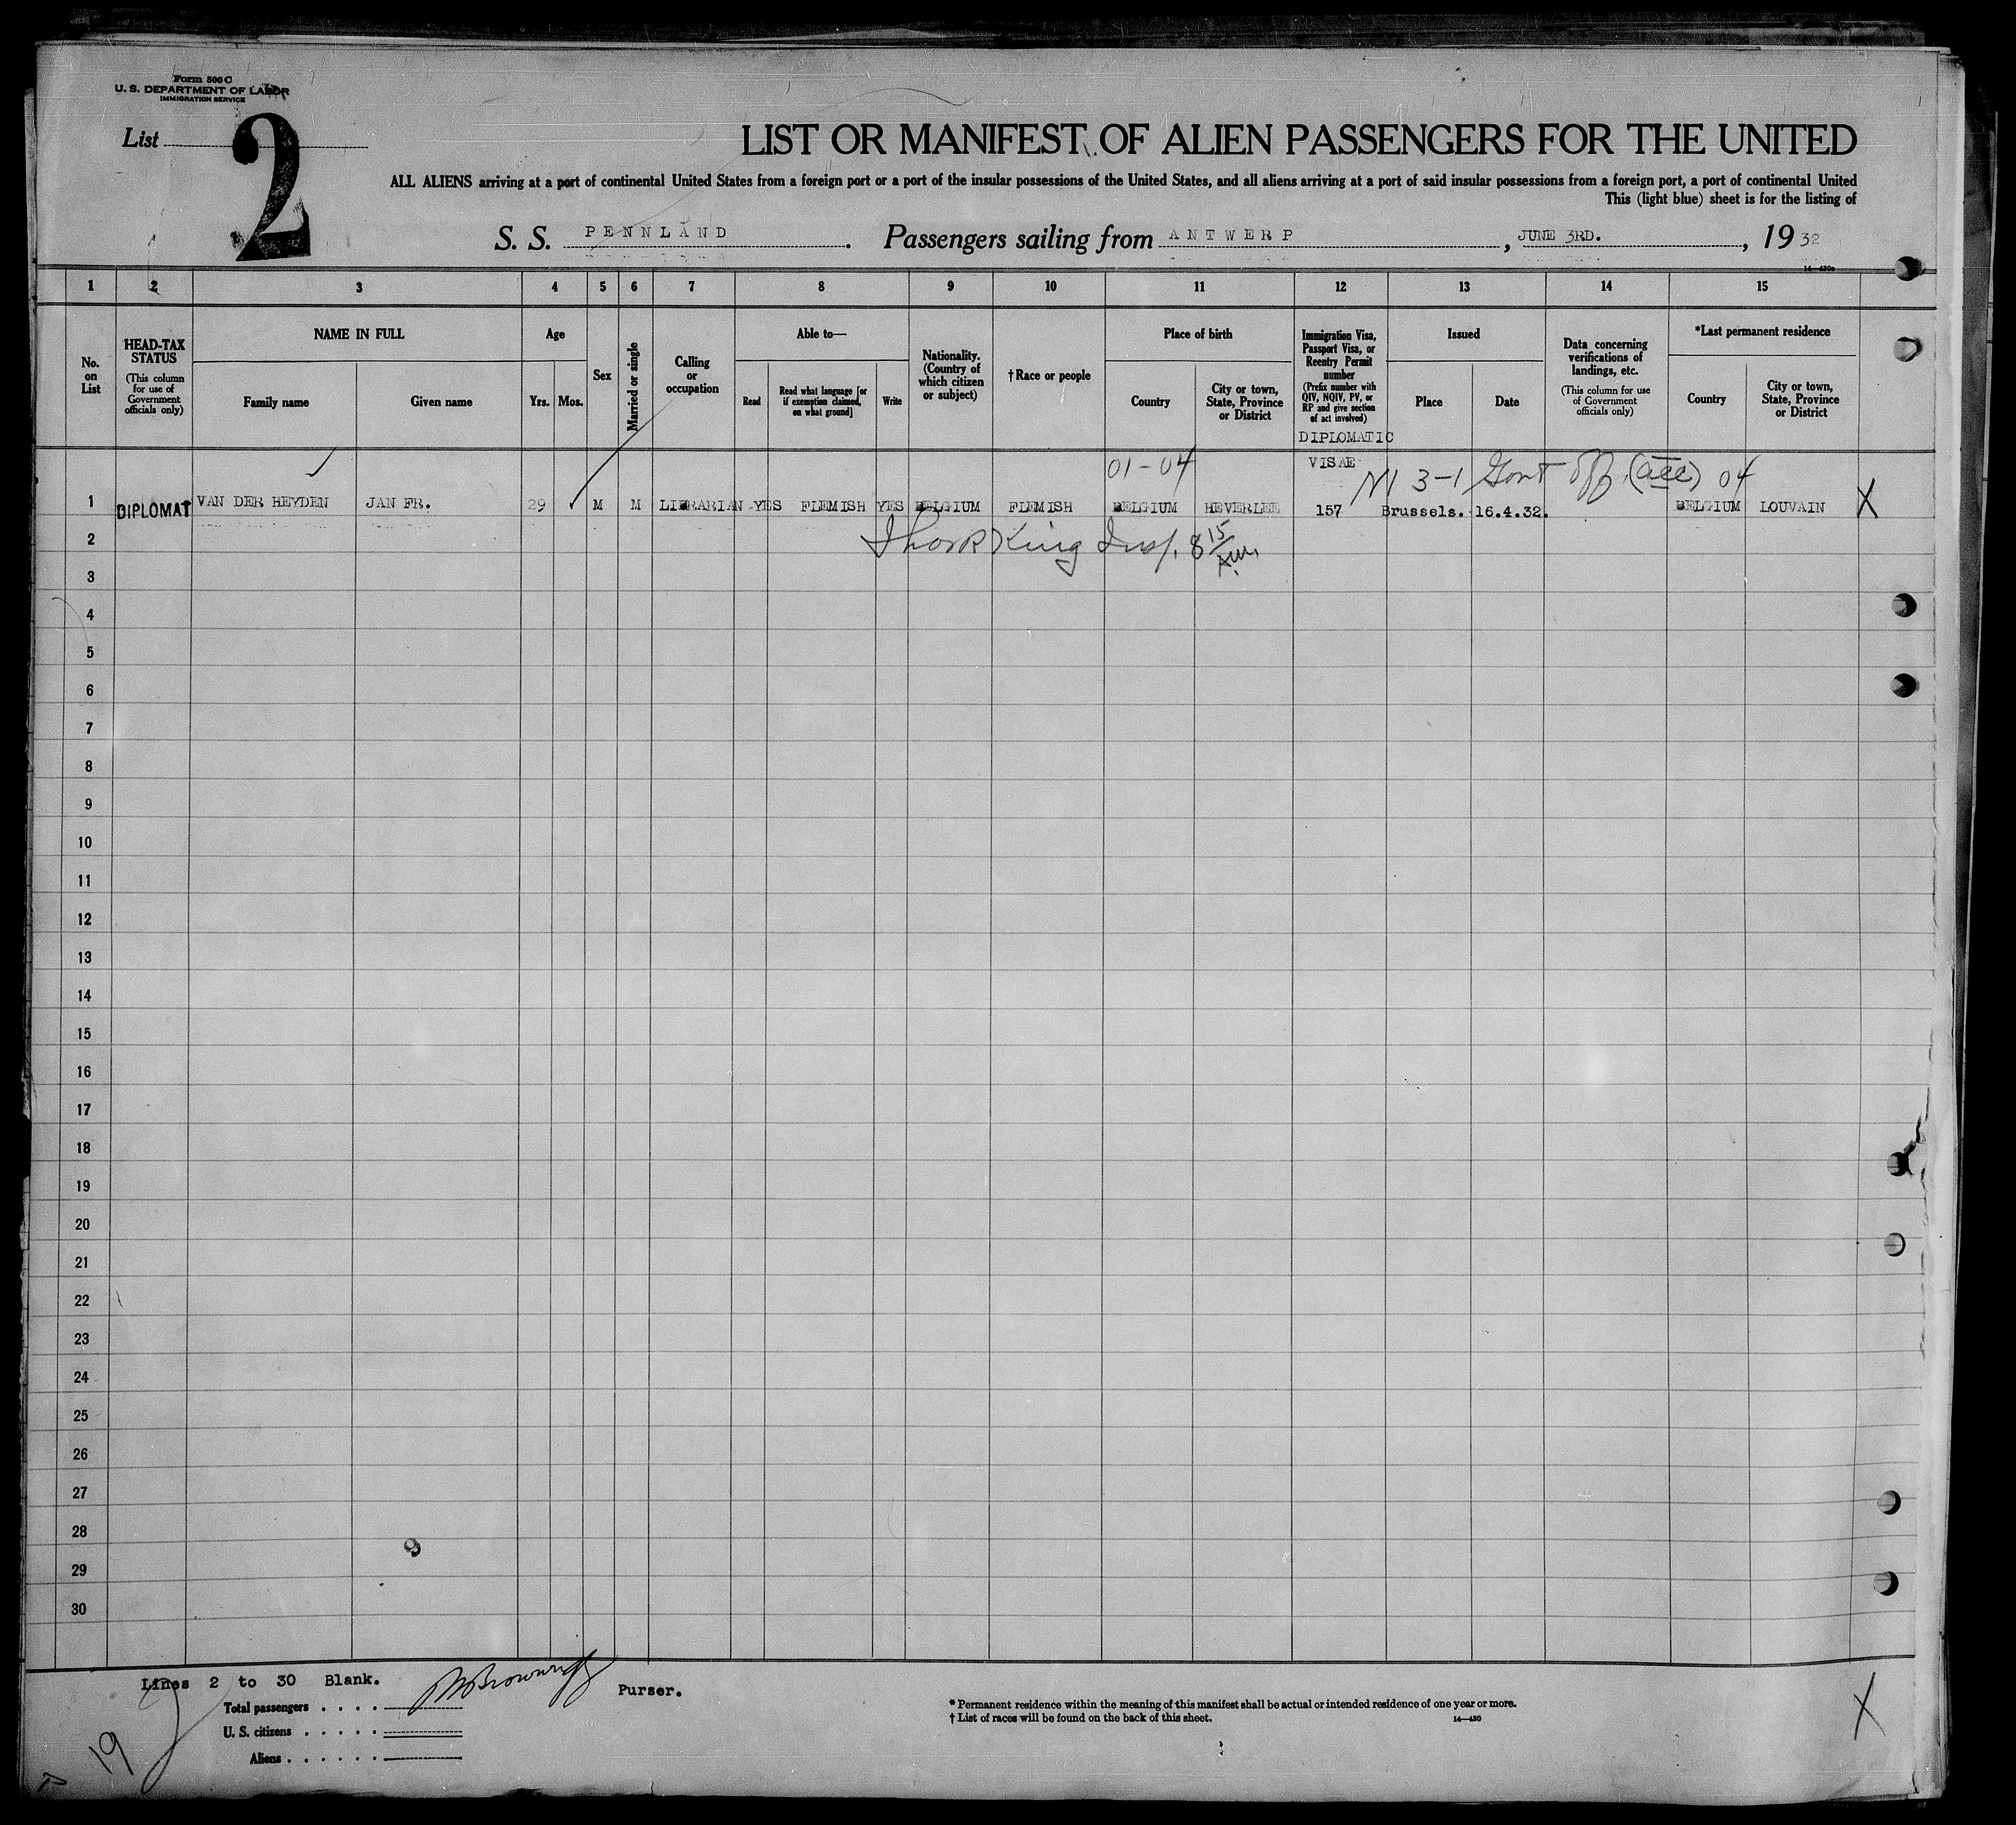 Form 500 C
U. S. DEPARTMENT OF LABOR
IMMIGRATION SERVICE
List 2
LIST OR MANIFEST OF ALIEN PASSENGERS FOR THE UNITED
ALL ALIENS arriving at a port of continental United States from a foreign port or a port of the insular possessions of the United States, and all aliens arriving at a port of said insular possessions from a foreign port, a port of continental United
This (light blue) sheet is for the listing of
S. S. PENNLAND. Passengers sailing from ANTWERP, JUNE 3RD., 1932
14—430a
1 2 3 4 5 6 7 8 9 10 11 12 13 14 15
No. on List
HEAD-TAX STATUS (This column for use of Government officials only)
NAME IN FULL
Family name
Given name
Age
Yrs. Mos.
Sex
Married or single
Calling or occupation
Able to—
Read
Read what language [or if exemption claimed, on what ground]
Write
Nationality. (Country of which citizen or subject)
†Race or people
Place of birth
Country
City or town, State, Province or District
Immigration Visa, Passport Visa, or Reentry Permit number (Prefix number with QIV, NQIV, PV, or RP and give section of act involved)
Issued
Place
Date
Data concerning verifications of landings, etc. (This column for use of Government officials only)
*Last permanent residence
Country
City or town, State, Province or District
DIPLOMATIC
01-04 VISAE 3-1 Govt Off. (acc) 04
1 DIPLOMAT VAN DER HEYDEN JAN FR. 29 M M LIBRARIAN YES FLEMISH YES BELGIUM FLEMISH BELGIUM HEVERLEE 157 Brussels. 16.4.32. BELGIUM LOUVAIN X
2 King Insp. 8 15 AM.
3
4
5
6
7
8
9
10
11
12
13
14
15
16
17
18
19
20
21
22
23
24
25
26
27
28
29
30
Lines 2 to 30 Blank.
Purser.
Total passengers . . . .
U. S. citizens . . . . .
Aliens . . . . . .
* Permanent residence within the meaning of this manifest shall be actual or intended residence of one year or more.
† List of races will be found on the back of this sheet.
14—430
19
X